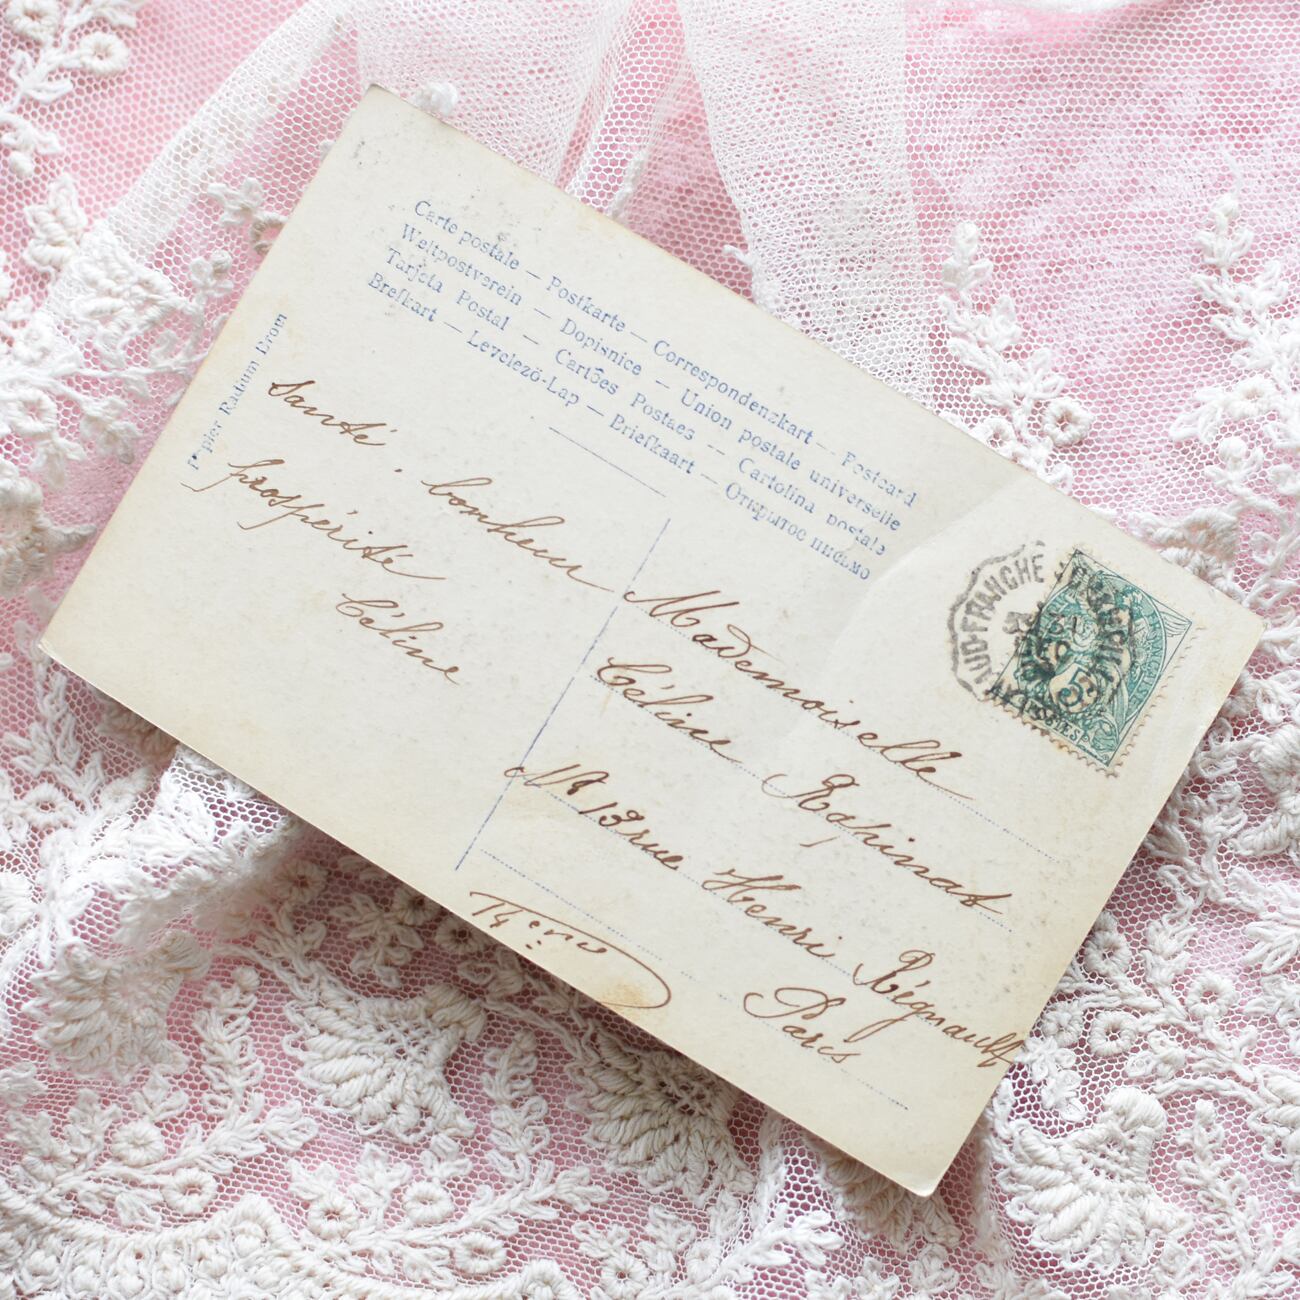 Carte postale — Postkarte — Correspondenzkart — Postcard
Weltpostverein — Dopisnice — Union postale universelle
Tarjeta Postal — Cartões Postaes — Cartolina postale
Brefkart — Levelező-Lap — Briefkaart — Открытое письмо
Papier Radium Brom
Santé, bonheur
prospérité
Céline
Mademoiselle
Céline Rapinat
Nº 13 rue Henri Régnault
Paris
14ème